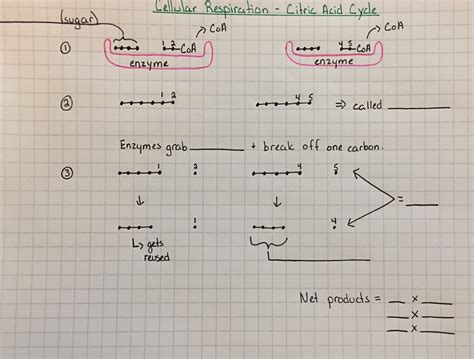 Cellular Respiration - Citric Acid Cycle
(sugar)
① 1 2 CoA → CoA 4 5 CoA → CoA
enzyme enzyme
② 1 2 4 5 ⇒ called ________
Enzymes grab ________ + break off one carbon.
③ 1 2 4 5
= ____
↓ ↓
1 4
↳ gets
reused
Net products = __ x ____
__ x ____
__ x ____